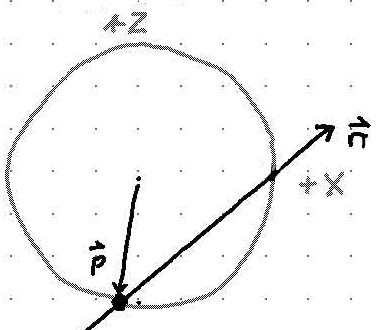 +Z
n⃗
+X
p⃗